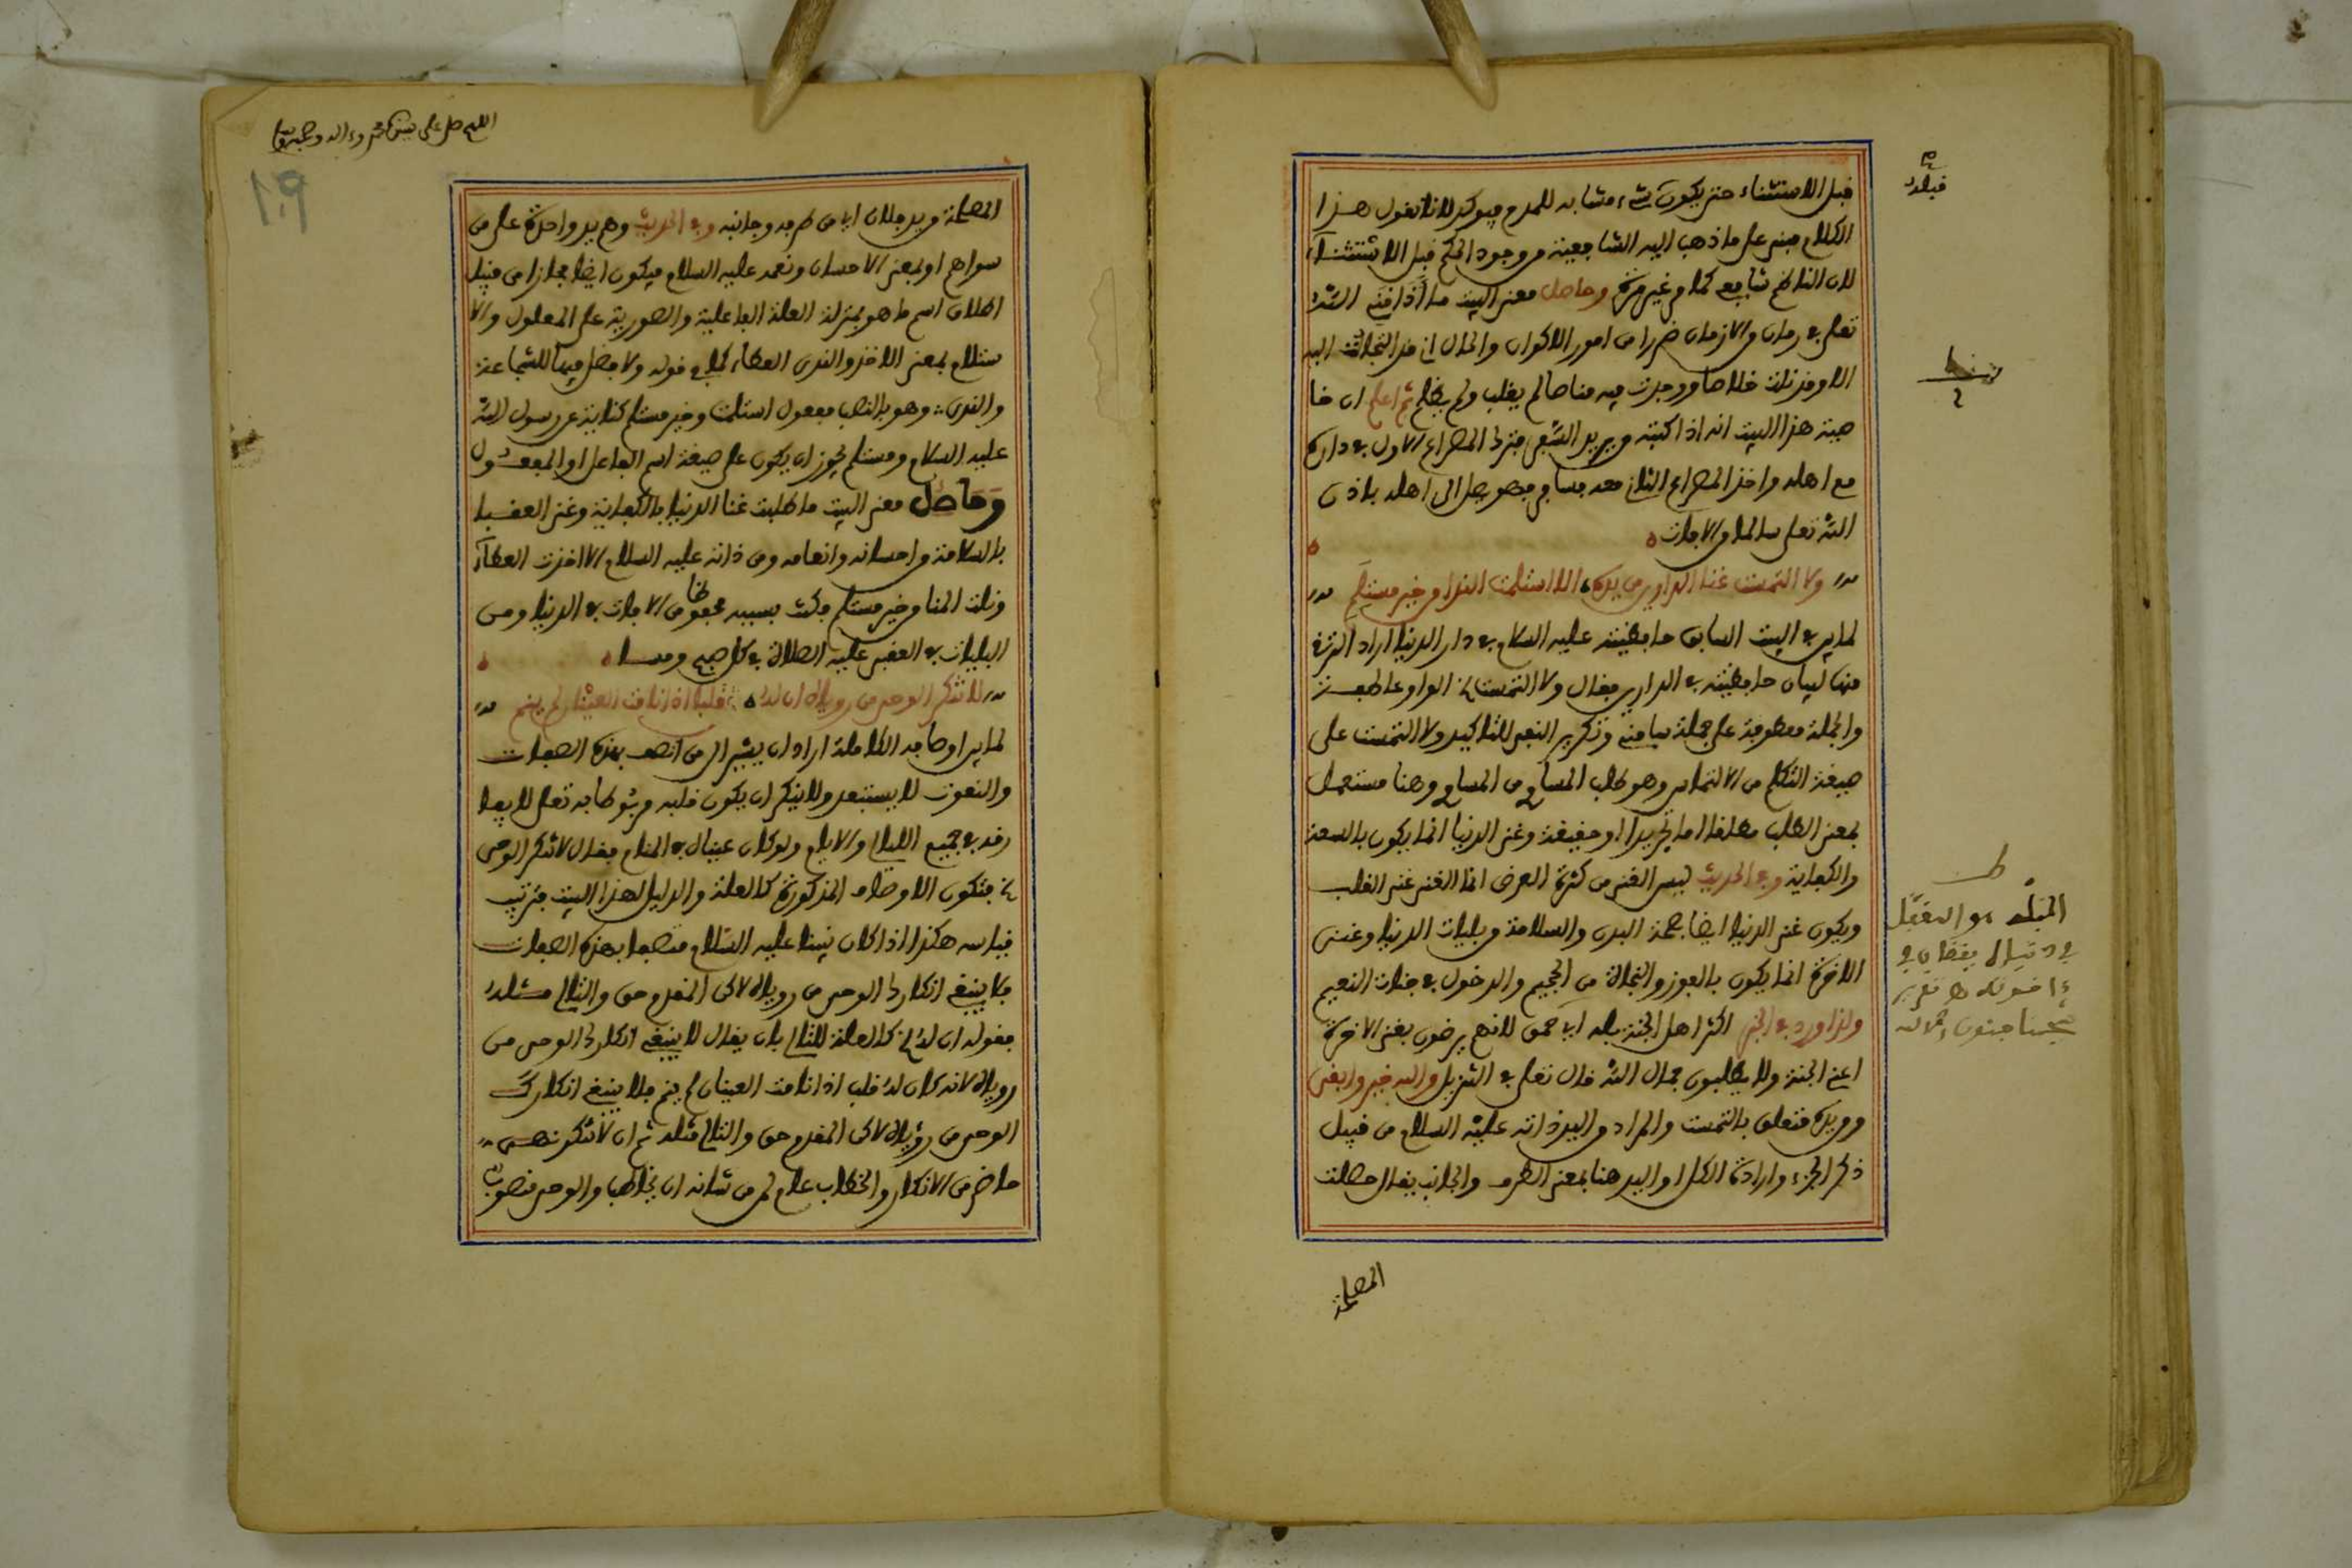 قبل الاستثناء حتى يكون شيء مشابه للمدح فيوكد لانا نقول هذا
الكلام مبني على ما ذهب اليه الشافعية من وجود الحكم قبل الاستثناء
لان الناظم شافعي كما مر غير مرة وحاصل معنى البيت ما أذاقني الله
تعلى في زمان من الازمان ضررا من امور الاكوان والحال اني قد التجات اليه
الا وقد نلت خلاصا ووجدت منه مناصا لم يغلب ولم يظلم ثم اعلم ان خا
صية هذا البيت انه اذا كتبته ويريد السفر فترك المصراع الاول في داره
مع اهله واخذ المصراع الثاني معه مسافر فهو يصل الى اهله باذن
الله تعلى سالما من الافات
ولا التمست غنا الدارين من يده الا استلمت الندا من خير مستلم
لما بين في البيت السابق حافظيته عليه السلام في دار الدنيا اراد الترقي
منها لبيان حافظيته في الدارين فقال ولا التمست الخ الواو عاطفة
والجملة معطوفة على جملة سامني وتكرير النفي للتاكيد ولا التمست على
صيغة التكلم من الالتماس وهو طلب المساوي من المساوي وهنا مستعمل
بمعنى الطلب مطلقا اما تجريدا او حقيقة وغنى الدنيا انما يكون بالسعة
والكفاية وفي الحديث ليس الغنى من كثرة العرض انما الغنى غنى القلب
ويكون غنى الدنيا ايضا بصحة البدن والسلامة من بليات الدنيا وغنى
الاخرة انما يكون بالفوز والنجاة من الجحيم والدخول في جنات النعيم
ولذا ورد في الخبر اكثر اهل الجنة بله اي حمق لانهم يرضون بغنى الاخرة
اعني الجنة ولا يطلبون جمال الله قال تعلى في التنزيل والله خير وابقى
ومن يده متعلق بالتمست والمراد من اليد ذاته عليه السلام من قبيل
ذكر الجزء وارادة الكل او اليد هنا بمعنى الطرف والجانب يقال حصلت
المصلحة
قبله
المصلحة من يد فلان اي من طرفه وجانبه وفي الحديث وهم يد واحدة على من
سواهم او بمعنى الاحسان ونعمه عليه السلام فيكون ايضا مجازا من قبيل
اطلاق اسم ما هو بمنزلة العلة الفاعلية والصورية على المعلول والا
ستلام بمعنى الاخذ والندى العطاء كما في قوله ولا فضل فيها للشجاعة
والندى وهو بالنصب مفعول استلمت وخير مستلم كناية عن رسول الله
عليه السلام ومستلم يجوز ان يكون على صيغة اسم الفاعل او المفعول
وحاصل معنى البيت ما طلبت غنا الدنيا بالكفاية وغنى العقبا
بالسلامة من احسانه وانعامه ومن ذاته عليه السلام الا اخذت العطاء
ونلت المنا من خير مستلم فكنت بسببه محفوظا من الافات في الدنيا ومن
البليات في العقبى عليه الصلاة في كل صبح ومسا
لا تنكر الوحي من رءياه ان له قلبا اذا نامت العينان لم ينم
لما بين اوصافه الكاملة اراد ان يشير الى من اتصف بهذه الصفات
والنعوت لا يستبعد ولا ينكر ان يكون قلبه مربوطا به تعلى لا يفا
رقه في جميع الليالي والايام ولو كان عيناه في المنام فقال لا تنكر الوحي
الخ فتكون الاوصاف المذكورة كالعلة والدليل لهذا البيت فترتيب
قياسه هكذا اذا كان نبينا عليه السلام متصفا بهذه الصفات
فلا ينبغي انكارك الوحي من رءياه لاكن المقدم حق والتالي مثله
فقوله ان له الخ كالعلة للتالي بان يقال لا ينبغي انكارك الوحي من
رءياه لانه كان له قلب اذا نامت العينان لم ينم فلا ينبغي انكارك
الوحي من رءياه لاكن المقدم حق والتالي مثله ثم ان لا تنكر نهي
حاضر من الانكار والخطاب عام لمن من شانه ان يخاطب والوحي منصوب